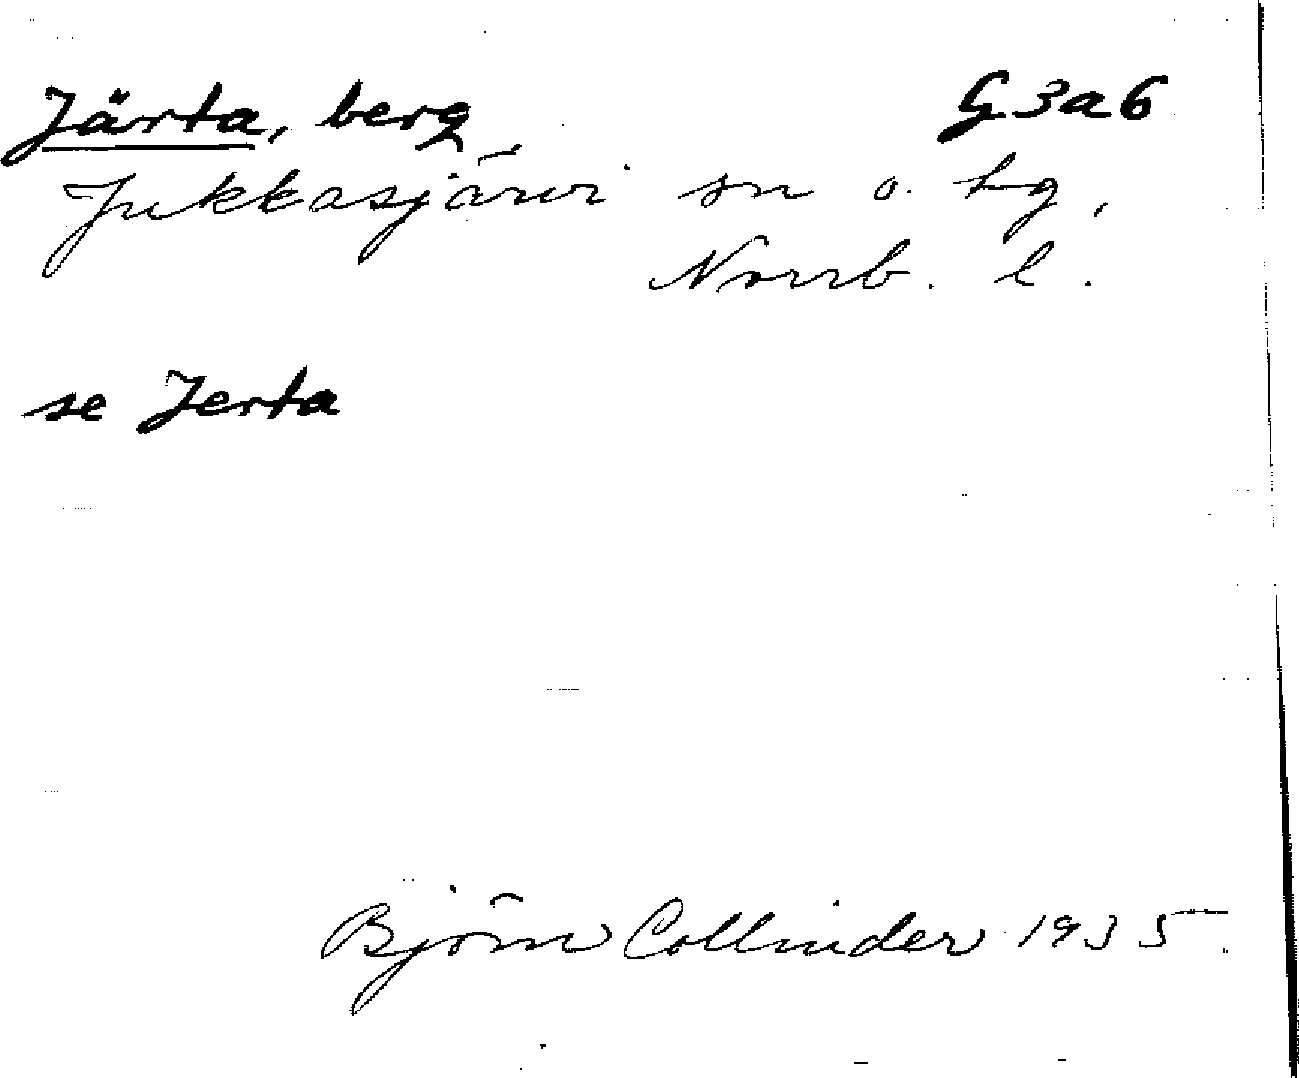 Järta, berg G3a6
Jukkasjärvi sn o. tg,
Norrb. l.
se Jerta
Björn Collinder 1935.